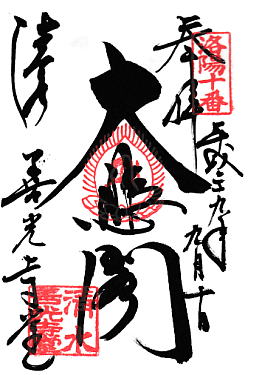 洛陽十番
奉拝
平成二九年九月十日
大悲閣
清水
善光寺堂
清水
善光寺堂